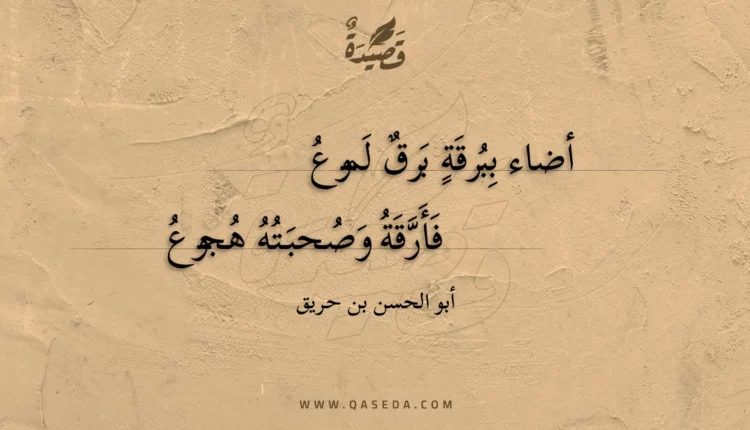 قَصِيْدَةٌ
أضاء بِبُرقَةٍ بَرقٌ لَموعُ
فَأَرَّقَةُ وَصُحبَتُهُ هُجوعُ
أبو الحسن بن حريق
WWW.QASEDA.COM